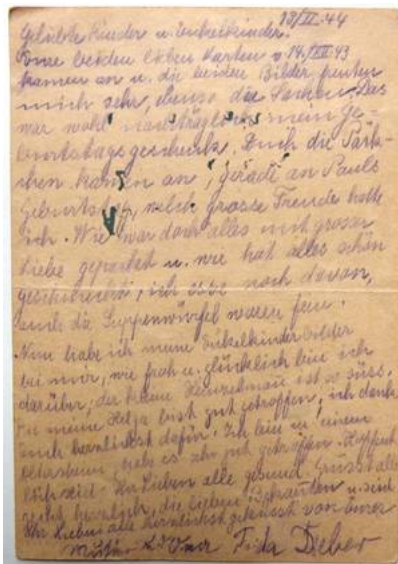 13/II.44
Geliebte Kinder u. Enkelkinder.
Eure beiden lieben Karten v. 14./XII 43
kamen an u. die beiden Bilder freuten
mich sehr, ebenso die Sachen. Das
war wohl nachträglich mein Ge-
burtstagsgeschenk. Auch die Päck-
chen kamen an, gerade an Pauls
Geburtstag, welch grosse Freude hatte
ich. Wie war doch alles mit grosser
Liebe gepackt u. wie hat alles schön
geschmeckt, ich esse noch davon,
auch die Suppenwürfel waren fein.
Nun habe ich meine Enkelkinder bilder
bei mir, wie froh u. glücklich bin ich
darüber, der kleine ist so süss.
Du meine Helja bist gut getroffen, ich danke
Euch herzlichst dafür. Ich bin in einem
Altersheim, habe es sehr gut getroffen. Hoffentl.
seid Ihr Lieben alle gesund. Grüsst alle
recht herzlich, die lieben u. seid
Ihr Lieben alle herzlichst gegrüsst von Eurer
Mutter u. Oma Frida Dieber